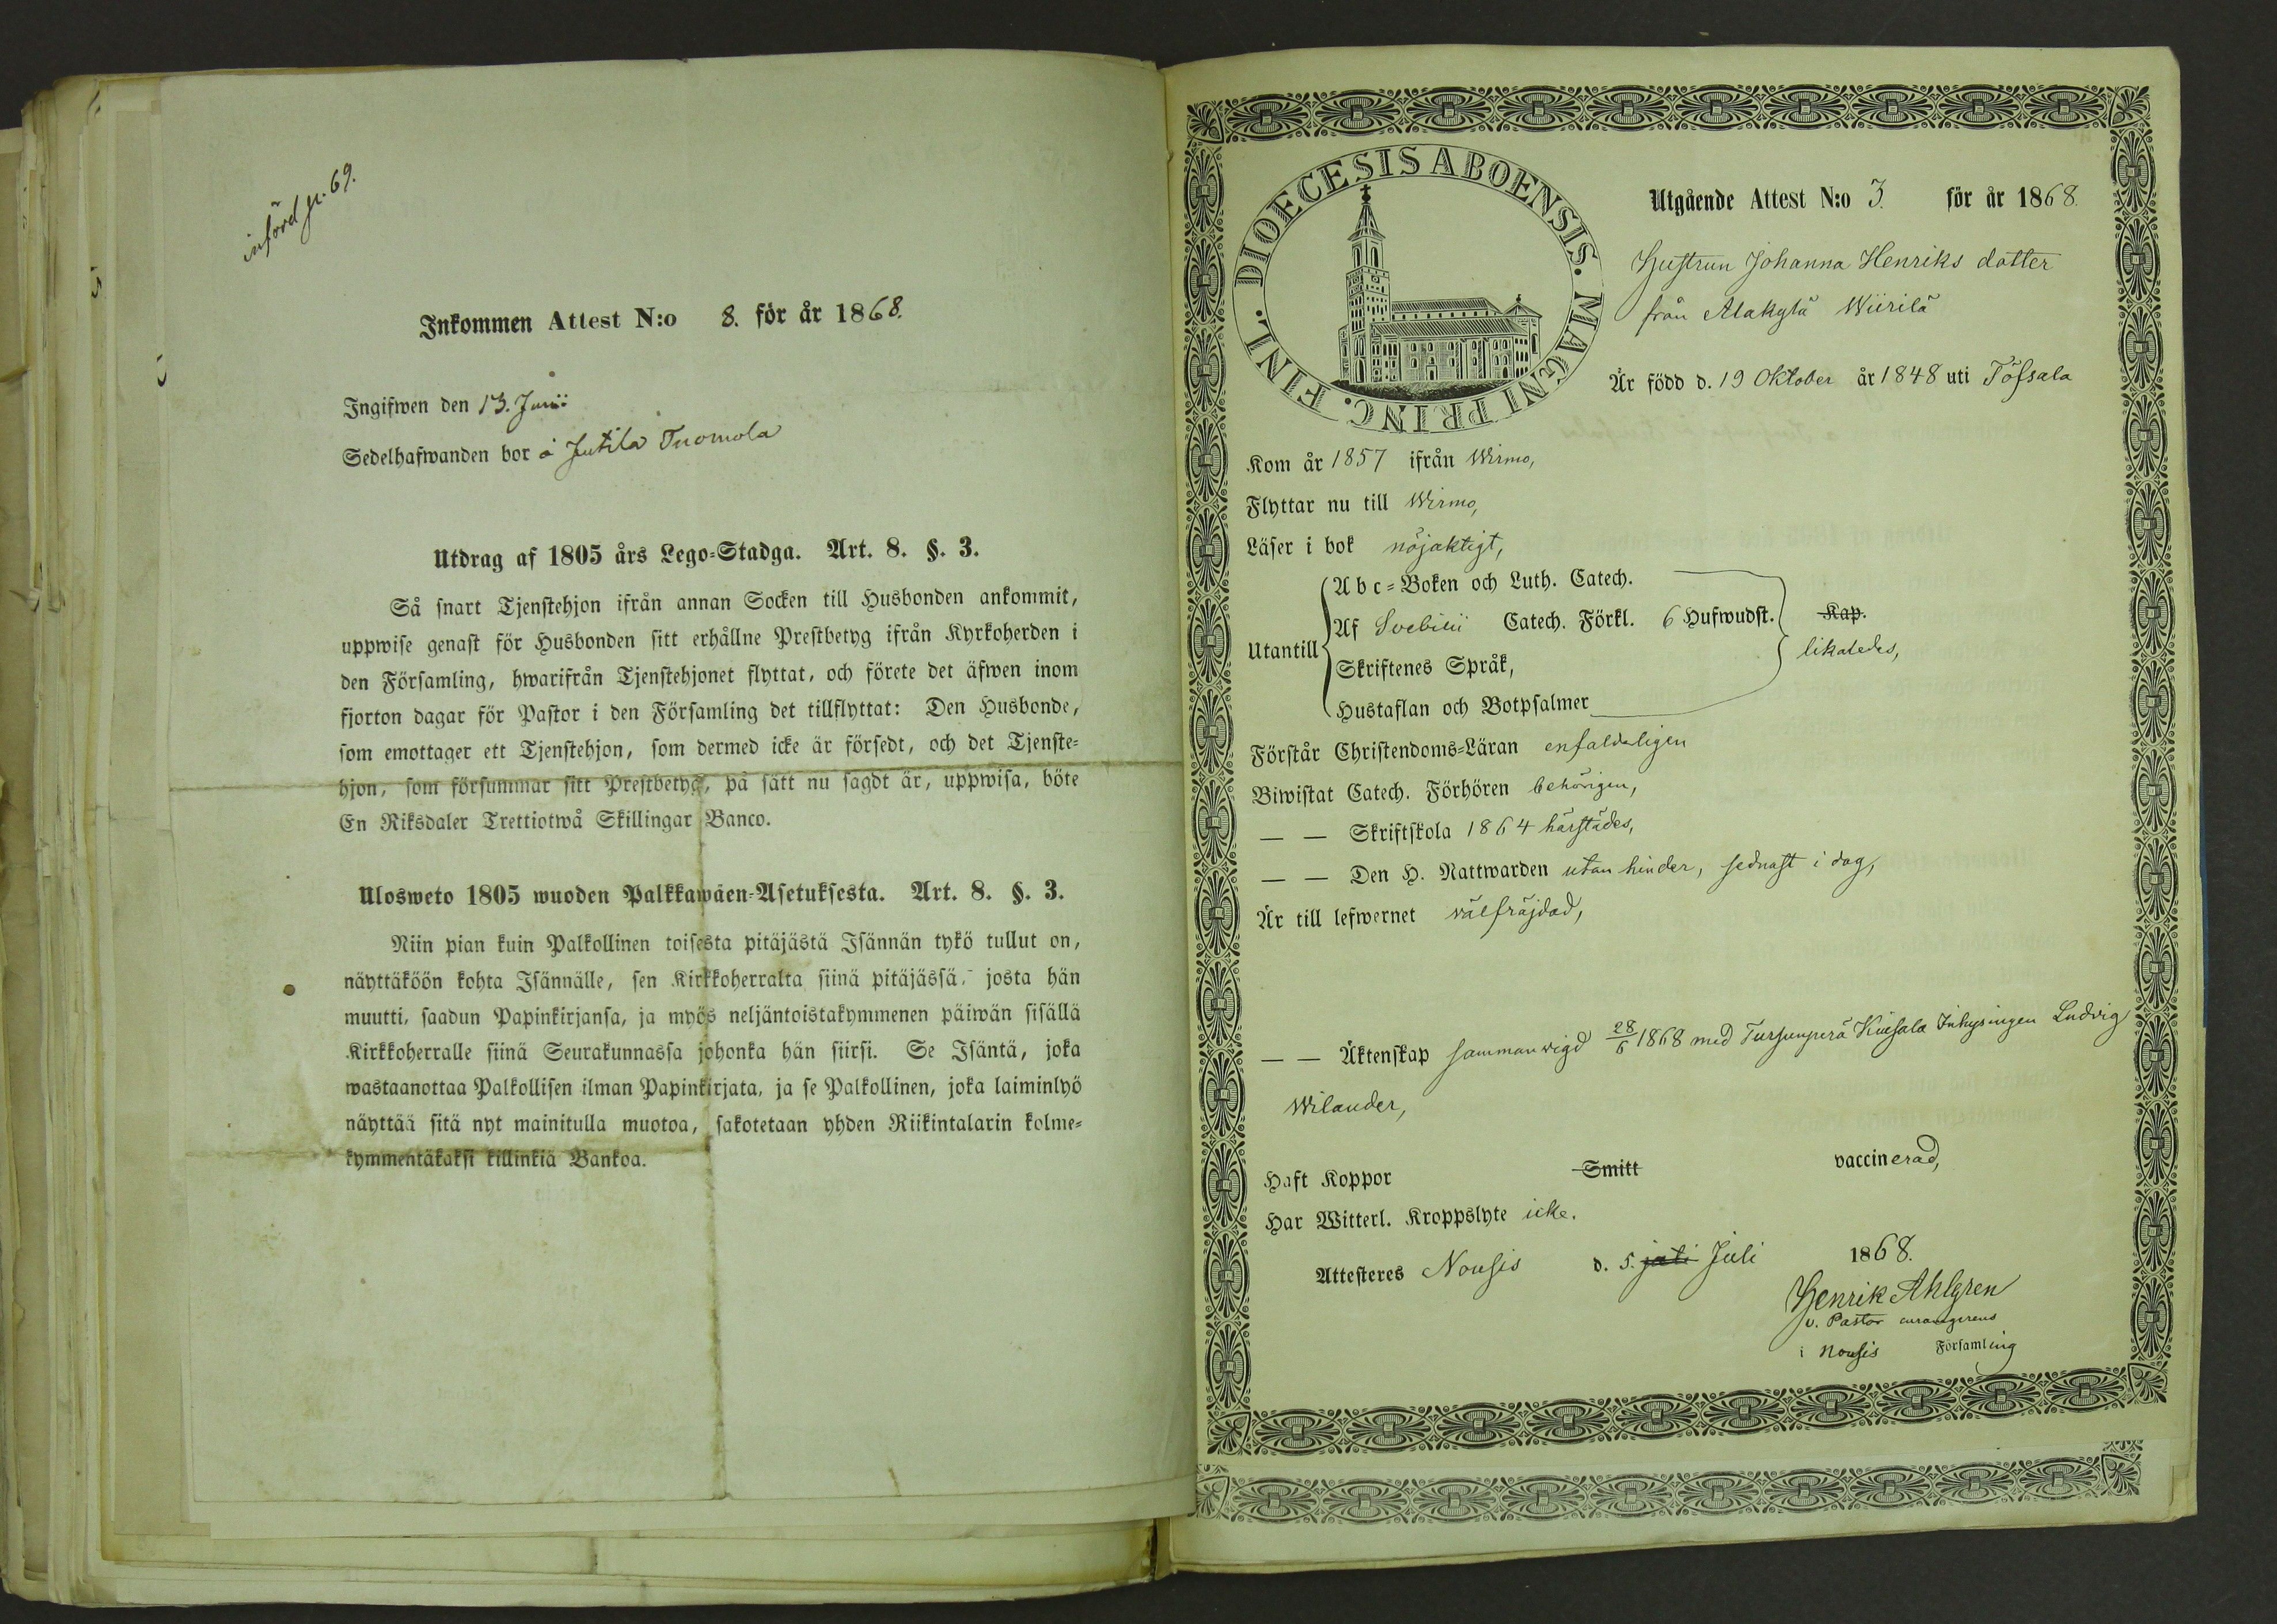 införd p. 69.
Inkommen Attest N:o 8. för år 1868.
Ingifwen den 13. Junii
Sedelhafwanden bor å Jutila Tuomola
Utdrag af 1805 års Lego-Stadga. Art. 8. §. 3.
Så snart Tjenstehjon ifrån annan Socken till Husbonden ankommit,
uppwise genast för Husbonden sitt erhållne Prestbetyg ifrån Kyrkoherden i
den Församling, hwarifrån Tjenstehjonet flyttat, och förete det äfwen inom
fjorton dagar för Pastor i den Församling det tillflyttat: Den Husbonde,
som emottager ett Tjenstehjon, som dermed icke är försedt, och det Tjenste-
hjon, som försummar sitt Prestbetyg, på sätt nu sagdt är, uppwisa, böte
En Riksdaler Trettiotwå Skillingar Banco.
Ulosweto 1805 wuoden Palkkawäen-Asetuksesta. Art. 8. §. 3.
Niin pian kuin Palkollinen toisesta pitäjästä Isännän tykö tullut on,
näyttäköön kohta Isännälle, sen Kirkkoherralta siinä pitäjässä, josta hän
muutti, saadun Papinkirjansa, ja myös neljäntoistakymmenen päiwän sisällä
Kirkkoherralle siinä Seurakunnassa johonka hän siirsi. Se Isäntä, joka
wastaanottaa Palkollisen ilman Papinkirjata, ja se Palkollinen, joka laiminlyö
näyttää sitä nyt mainitulla muotoa, sakotetaan yhden Riikintalarin kolme-
kymmentäkaksi killinkiä Bankoa.
DIOECESIS ABOENSIS. MAGNI PRINC. FINL.
Utgående Attest N:o 3. för år 1868.
Hustrun Johanna Henriks dotter
från Alakylä Wiirilä
Är född d. 19 Oktober år 1848 uti Töfsala
Kom år 1857 ifrån Wirmo,
Flyttar nu till Wirmo,
Läser i bok nöjaktigt,
Abc-Boken och Luth. Catech.
Utantill Af Svebilii Catech. Förkl. 6 Hufwudst. Kap.
likaledes,
Skriftenes Språk,
Hustaflan och Botpsalmer
Förstår Christendoms-Läran enfaldeligen
Biwistat Catech. Förhören behörigen,
— — Skriftskola 1864 härstädes,
— — Den H. Nattwarden utan hinder, sednast i dag,
Är till lefwernet välfräjdad,
— — Äktenskap sammanvigd 28/6 1868 med Tursunperä Kuusala Inhysingen Ludvig
Wilander,
Haft Koppor Smitt vaccinerad,
Har Witterl. Kroppslyte icke.
Attesteres Nousis d. 5. juli Juli 1868.
Henrik Ahlgren
v. Pastor curam gerens
i Nousis Församling